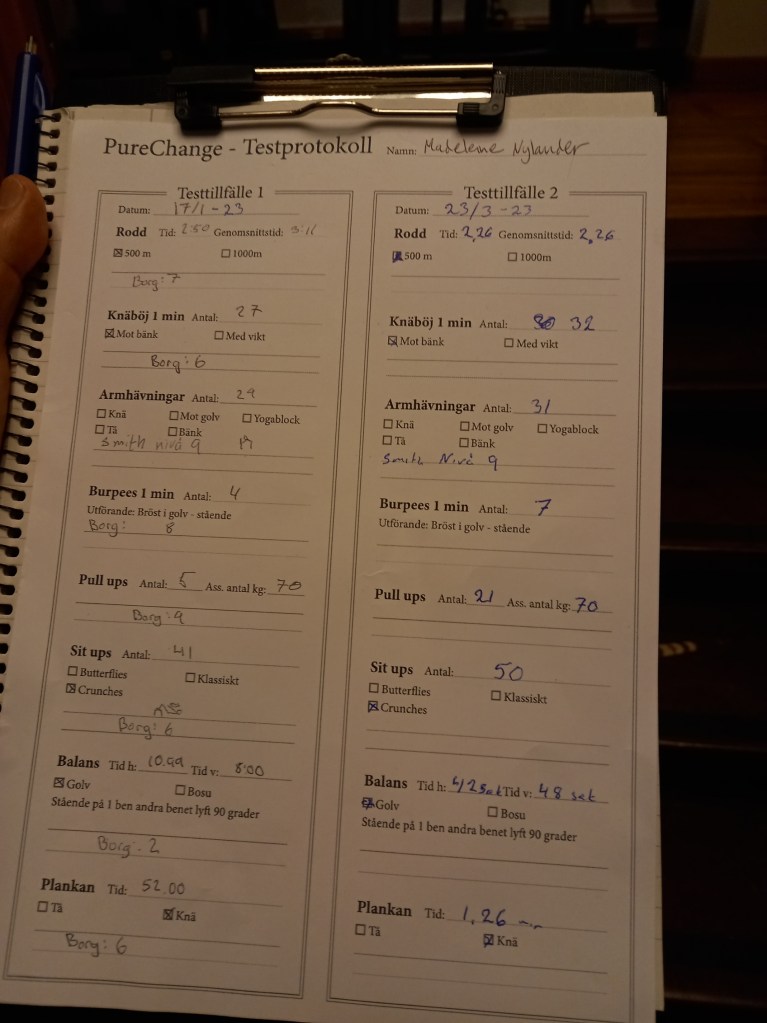 PureChange - Testprotokoll Namn: Madeleine Nylander
Testtillfälle 1
Datum: 17/1 - 23
Rodd Tid: 2:50 Genomsnittstid:
☒ 500 m ☐ 1000m
Borg: 7
Knäböj 1 min Antal: 27
☒ Mot bänk ☐ Med vikt
Borg: 6
Armhävningar Antal: 29
☐ Knä ☐ Mot golv ☐ Yogablock
☐ Tå ☐ Bänk
Smith nivå 9
Burpees 1 min Antal: 4
Utförande: Bröst i golv - stående
Borg: 8
Pull ups Antal: 5 Ass. antal kg: 70
Borg: 9
Sit ups Antal: 41
☐ Butterflies ☐ Klassiskt
☒ Crunches
Borg: 6
Balans Tid h: 10.99 Tid v: 8:00
☒ Golv ☐ Bosu
Stående på 1 ben andra benet lyft 90 grader
Borg: 2
Plankan Tid: 52,00
☐ Tå ☒ Knä
Borg: 6
Testtillfälle 2
Datum: 23/3 - 23
Rodd Tid: 2,26 Genomsnittstid: 2,26
☒ 500 m ☐ 1000m
Knäböj 1 min Antal: 32
☒ Mot bänk ☐ Med vikt
Armhävningar Antal: 31
☐ Knä ☐ Mot golv ☐ Yogablock
☐ Tå ☐ Bänk
Smith Nivå 9
Burpees 1 min Antal: 7
Utförande: Bröst i golv - stående
Pull ups Antal: 21 Ass. antal kg: 70
Sit ups Antal: 50
☐ Butterflies ☐ Klassiskt
☒ Crunches
Balans Tid h: 42 sek Tid v: 48 sek
☒ Golv ☐ Bosu
Stående på 1 ben andra benet lyft 90 grader
Plankan Tid: 1,26
☐ Tå ☒ Knä